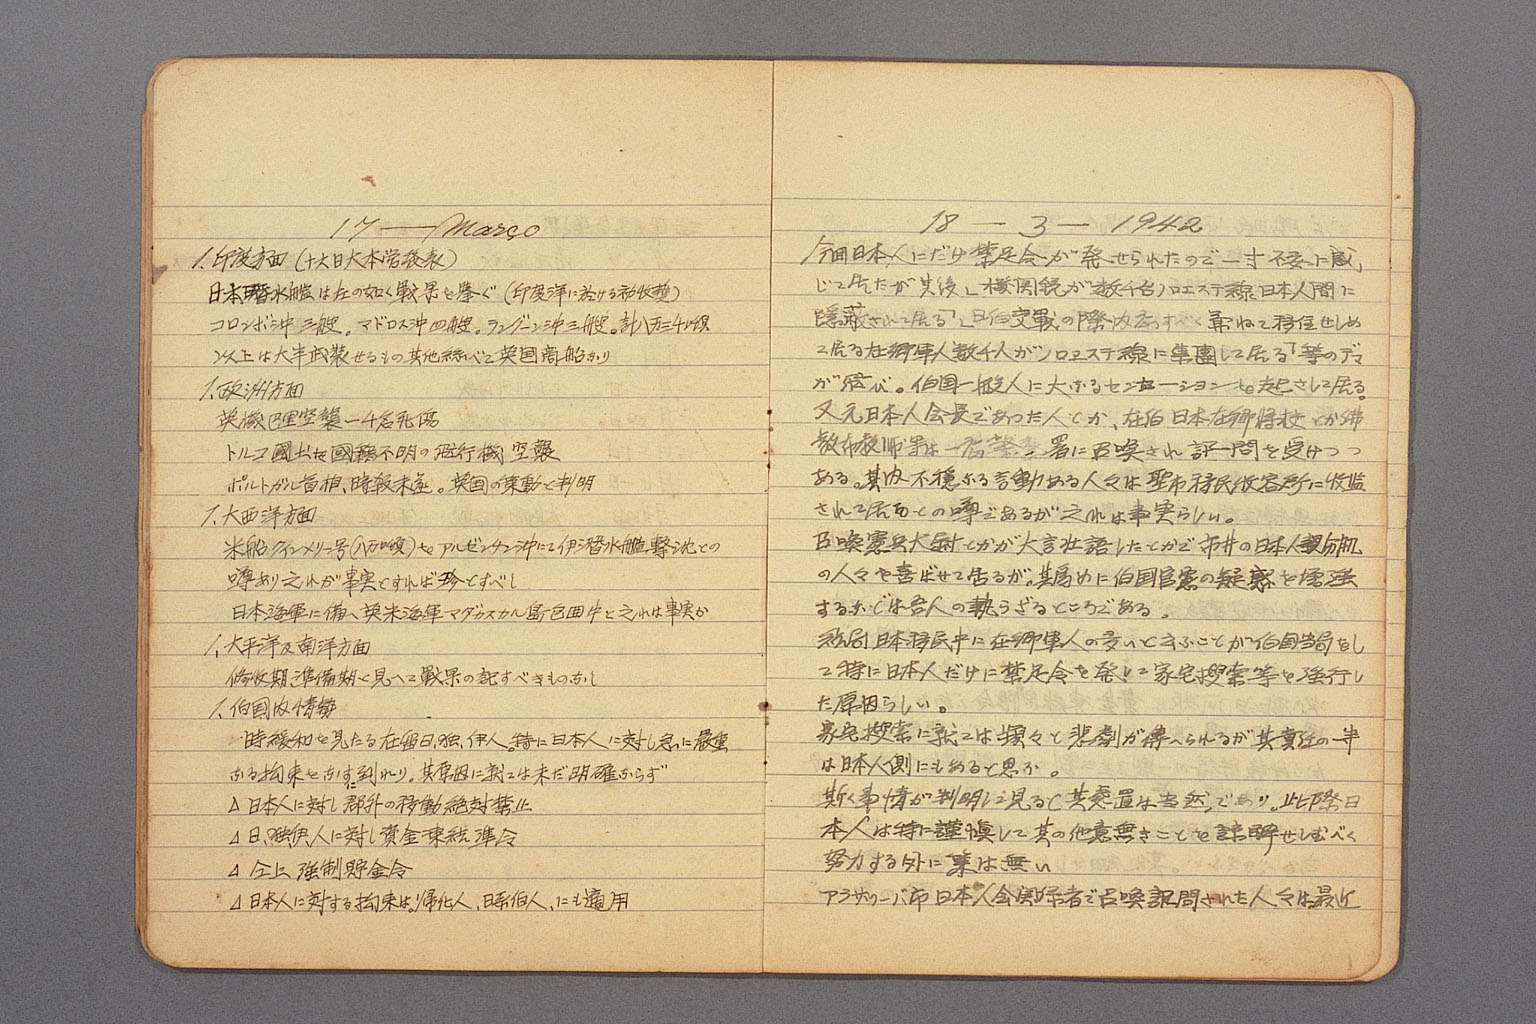 17 — Março
1. 印度方面 (十六日大本営発表)
日本潜水艦は左の如く戦果を挙ぐ (印度洋に於ける初収穫)
コロンボ沖 三艘。マドロス沖 四艘。ラングーン沖 三艘。計八万三千噸
以上は大半武装せるもの其他総べて英国商船なり
1. 欧洲方面
英機 巴里空襲 一千名死傷
トルコ國土を國籍不明の飛行機 空襲
ポルトガル首相、時報未遂。英国の策動と判明
1. 大西洋方面
米船クインメリー号(八万噸)をアルゼンチン沖にて伊潜水艦 撃沈との
噂あり之れが事実とすれば 珍とすべし
日本海軍に備へ英米海軍マダガスカル島包囲中と之れは事実か
1. 大平洋及南洋方面
修收期 準備期と見へて戦果の記すべきものなし
1. 伯国内情勢
一時緩和を見たる在留日、独、伊人、特に日本人に対し急に厳重
なる拘束をなすに到れり。其原因に就ては未だ明確ならず
△ 日本人に対し郡外の移動絶対禁止
△ 日、独伊人に対し資金凍結準令
△ 仝上 強制貯金令
△ 日本人に対する拘束は、帰化人、日系伯人、にも適用
18 — 3 — 1942
今回日本人にだけ禁足令が発せられたので一寸不安に感
じて居たが其後「機関銃が数千台ノロエステ線日本人間に
隠蔽されて居る」「日伯交戦の際内応すべく兼ねて移住せしめ
て居る在郷軍人数千人がノロエステ線に集團して居る」等のデマ
が飛び。伯国一般人に大なるセンセーションを起さして居る。
又元日本人会長であった人とか、在伯日本在郷将校とか佛
教布教師等は 警察署に召喚され 訊問を受けつつ
ある。其内不穏なる言動ある人々は聖市移民收容所に收監
されて居るとの噂であるが之れは事実らしい。
召喚憲兵大尉とかが大言壮語したとかで市井の日本人
の人々を喜ばせて居るが。其為めに伯国官憲の疑惑を増強
するなどは吾人の執らざるところである。
結局日本移民中に在郷軍人の多いと云ふことが伯国当局をし
て特に日本人だけに禁足令を発して家宅捜索等を強行し
た原因らしい。
家宅捜索に就ては頻々と悲劇が傳へられるが其責任の一半
は日本人側にもあると思ふ。
斯く事情が判明して見ると其処置は当然であり。此際日
本人は特に謹慎して其の他意無きことを諒解せしむべく
努力する外に策は無い
アラサツーバ市日本人会関係者で召喚訊問された人々は最近